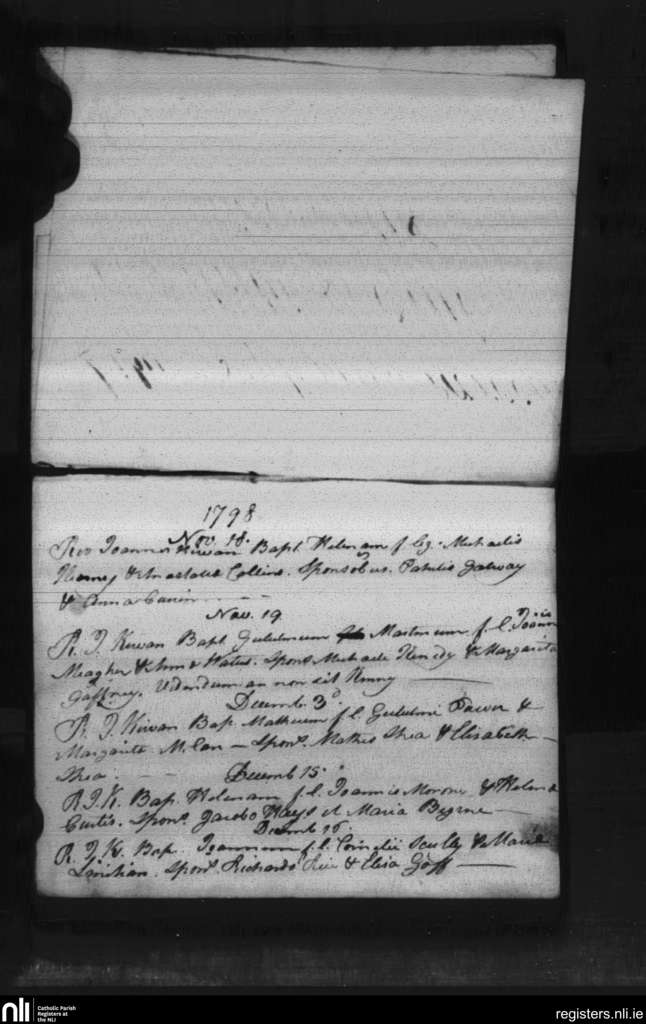 1798
Nov. 18.
Rev Joannes Kirwan Bapt Helenam f. leg. Michaelis
& Anastatia Collins. Sponsobus. Patritio Galway
& Anna
Nov. 19
R. J. Kirwan Bapt Gulielmum Martinum f. l. Joannis
Meagher & Anna Waters. Spons Michaele Kenedy & Margarita
Gaffney. Videndum an non sit Kenny
Decemb. 3º
R. J. Kirwan Bap. Matheum f. l. Gulielmi Power &
Margarita – Sponr. Matheo Shea & Elisabeth
Shea.
Decemb 15.
R. J. K. Bap. Helenam f. l. Joannis & Helena
Curtis. Sponr. Jacobo Hays et Maria Byrne
Decemb 16.
R. J. K. Bap. Joannem f. l. Cornelii Scully & Maria
Sponr. Richardo & Elisa Goff
nli
Catholic Parish
Registers at
the NLI
registers.nli.ie